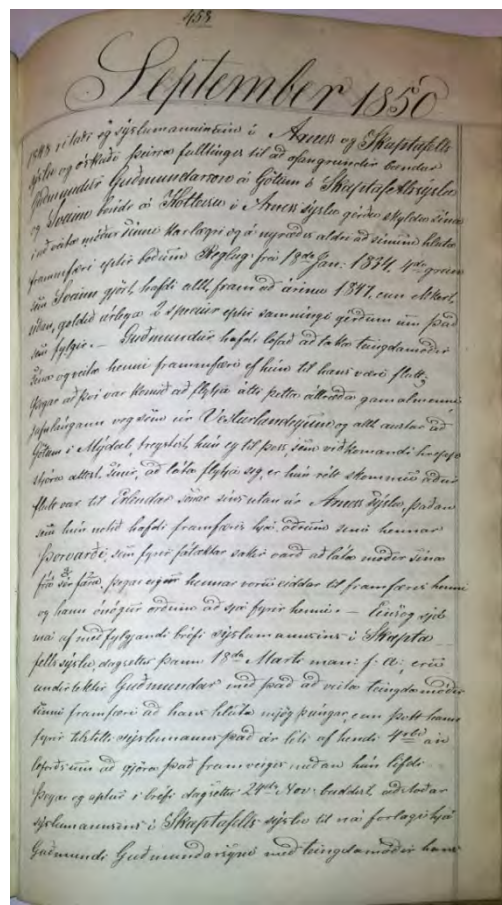 458
September 1850
1848 ritaði eg sýslumanninum í Árness og Skaptafells
sýslu og óskaði þeirra fulltingis til að ofangreindir bændur
Guðmundur Guðmundarson á Götum í Skaptafellssýslu
og Sveinn bóndi á í Árness sýslu gjörðu skyldu sína
í að veita móður sinni karlægri og á nýræðis aldri að sínum hluta
framfæri eptir boðum Reglug: frá 8da Jan: 1834, 4du grein
sem Sveinn gjört hafði allt fram að árinu 1847, enn ekkert
síðan, goldið árlega 2 speciur eptir samningi gerðum um það
sem fylgir. – Guðmundur hafði lofað að taka tengdamóður
sína og veita henni framfæri ef hún til hans væri flutt,
þegar að því var komið að flytja átti þetta áttræða gamalmenni
jafnlángann veg sem úr Vesturlandeyjum og allt austur að
Götum í Mýdal, treystist hún ey til þess, sem viðkomandi hrepp-
stjóra attest. sýnir, að láta flytja sig, er hún rétt skömmu áður
flutt var til Erlendar sonar síns utan úr Árness sýslu, þaðan
sem hún notið hafði framfæris hjá öðrum syni hennar
Þorvarði, sem fyrir fátæktar sakir varð að láta móður sína
frá sér fara, þegar eigur hennar voru eiddar til framfæris henni
og hann ónógur orðinn að sjá fyrir henni. – Einsog sjá
má af meðfylgjandi bréfi sýslumannsins í Skapta
fells sýslu, dagsettu þann 18da Marti man: f: a:, eru
undirtektir Guðmundar með það að veita tengdamóður
sinni framfæri að hans hluta mjög þungar, enn þótt hann
fyrir tilstilli sýslumanns það ár léti af hendi 4 rbd án
loforðs um að gjöra það framvegis meðan hún lifði.
Þegar eg aptur í bréfi dagsettu 24da Nov: beiddist aðstoðar
sýslumannsins í Skaptafells sýslu til að ná forlagi hjá
Guðmundi Guðmundarsyni með tengdamóður hans